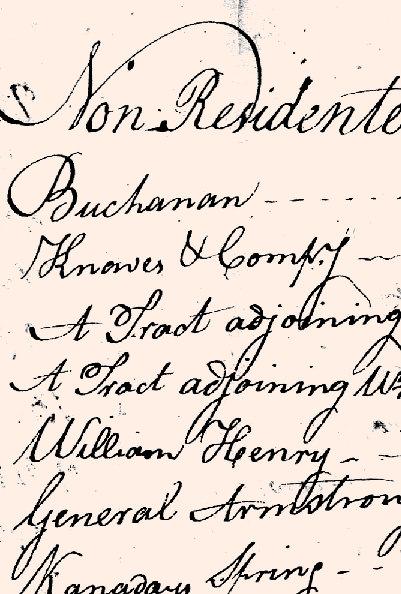 Non Residente
Buchanan - - - - -
Knowes & Compy -
A Tract adjoining
A Tract adjoining Wm
William Henry - -
General Armstron
Kanadays Spring - -